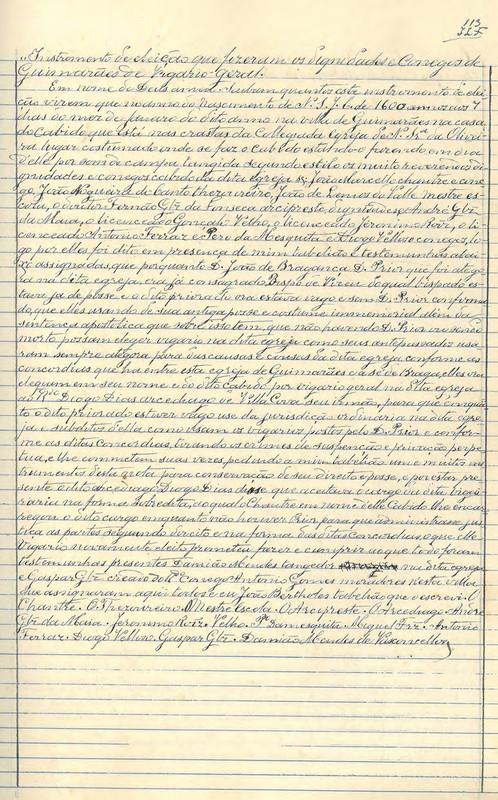 113
Instrumento de eleição que fizeram os Dignidades e Conegos de
Guimarães de Vigario Geral.
Em nome de Deus amen. Saibam quantos este instrumento de elei-
ção virem que no anno do nascimento de N. S. J. C. de 1600 annos aos 7
dias do mez de Janeiro do dito anno na villa de Guimarães na casa
do cabido que está nas crastas da Collegiada egreja de N.ª Sr.ª da Olivei-
ra lugar costumado onde se faz o cabido estando e fazendo em dia
delle por som de campa tangida segundo estilo os muito reverendos di-
gnidades e conegos cabido da dita egreja João chantre e cone-
go, João Nogueira do Canto thezoureiro, João de Lemos do Valle mestre es-
cola, o doutor Fernão Glz da Fonseca arcipreste, André Glz
da Maia, o licenceado Gonçalo Velho, o licenceado Jeronimo Roiz, o li-
cenceado Antonio Ferraz e Pero da Mesquita e Diogo Velloso conegos, lo-
go por elles foi dito em presença de mim tabellião e testemunhas abai-
xo assignadas, que porquanto D. João de Bragança D. Prior que foi atégo-
ra na dita egreja era já consagrado Bispo de Vizeu do qual bispado es-
tava já de posse e o dito priorado ora estava vago e sem D. Prior confirma-
do que elles usando de sua antiga posse e costume immemorial alem da
sentença apostolica que sobre isto tem, que não havendo D. Prior ou sendo
morto possam eleger vigario na dita egreja como seus antepassados usa-
ram sempre atégora para das causas e cousas da dita egreja conforme as
concordias que ha entre esta egreja de Guimarães e a sé de Braga, elles ora
elegiam em seu nome e do dito cabido por vigario geral na dita egreja
ao R.do Diogo Dias arcediago de Villa Cova seu irmão, para que emquan-
to o dito priorado estiver vago use da jurisdição ordinaria na dita egre-
ja e subditos della como usam os vigarios postos pelo D. Prior e confor-
me as ditas Concordias, tirando os crimes de suspenção e privação perpe-
tua, e lhe commetem suas vezes, pedindo a mim tabellião um e muitos ins-
trumentos desta nota para conservação de seu direito e posse, e por estar pre-
sente o dito Arcediago Diogo Dias disse que aceitava o cargo da dita viga-
raria na forma sobredita, ao qual Chantre em nome delle Cabido lhe encar-
regou o dito cargo emquanto não houver Prior para que administrasse jus-
tiça as partes segundo direito e na forma das ditas Concordias, o que elle
Vigario novamente eleito prometeu fazer e cumprir ao que todo foram
testemunhas presentes Damião Mendes tangedor na dita egreja
e Gaspar Glz creado do Conego Antonio Gomes moradores nesta Villa
que assignaram aqui todos e eu João Bertholez tabellião que o escrevi. O
Chantre. O Thezoureiro. O Mestre escola. O Arcipreste. O Arcediago. André
Glz da Maia. Jeronimo Roiz. Velho. P.º da mesquita. Miguel Frz. Antonio
Ferraz. Diogo Velloso. Gaspar Glz. Damião Mendes de Vasconcellos